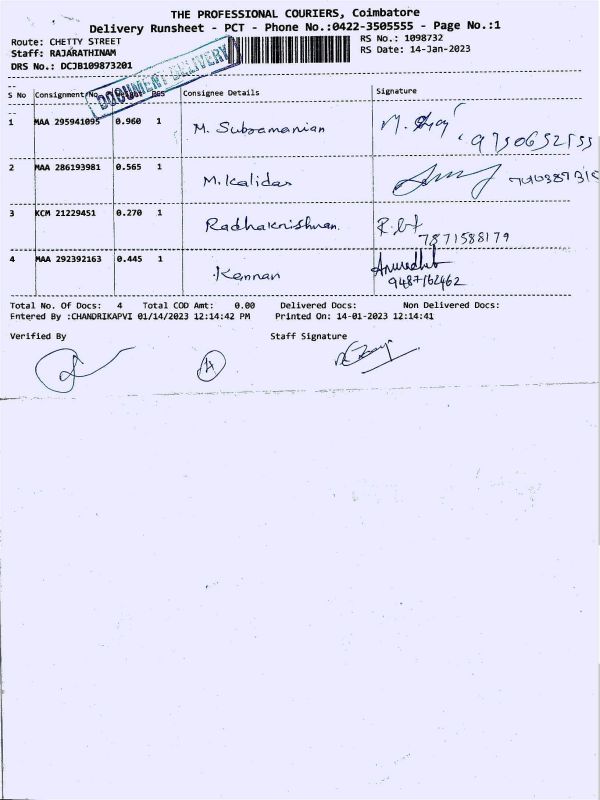 THE PROFESSIONAL COURIERS, Coimbatore
Delivery Runsheet - PCT - Phone No.:0422-3505555 - Page No.:1
Route: CHETTY STREET
RS No.: 1098732
Staff: RAJARATHINAM
RS Date: 14-Jan-2023
DRS No.: DCJB109873201
DOCUMENT DELIVERY
S No Consignment No Pcs Consignee Details Signature
1 MAA 295941095 0.960 1 M. Subramanian M. 9750652555
2 MAA 286193981 0.565 1 M. Kalidas
3 KCM 21229451 0.270 1 Radhakrishnan. 7871588179
4 MAA 292392163 0.445 1 Kennan Anuredhab
9487162462
Total No. Of Docs: 4 Total COD Amt: 0.00 Delivered Docs: Non Delivered Docs:
Entered By :CHANDRIKAPVI 01/14/2023 12:14:42 PM Printed On: 14-01-2023 12:14:41
Verified By Staff Signature